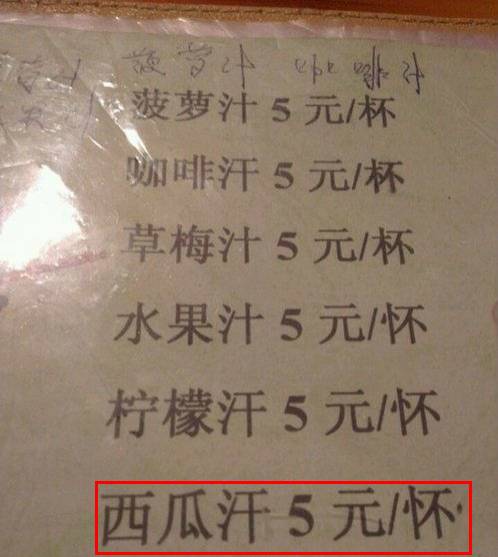 菠萝汁 咖啡汁
菠萝汁 5 元/杯
咖啡汗 5 元/杯
草梅汁 5 元/杯
水果汁 5 元/怀
柠檬汗 5 元/怀
西瓜汗 5 元/怀